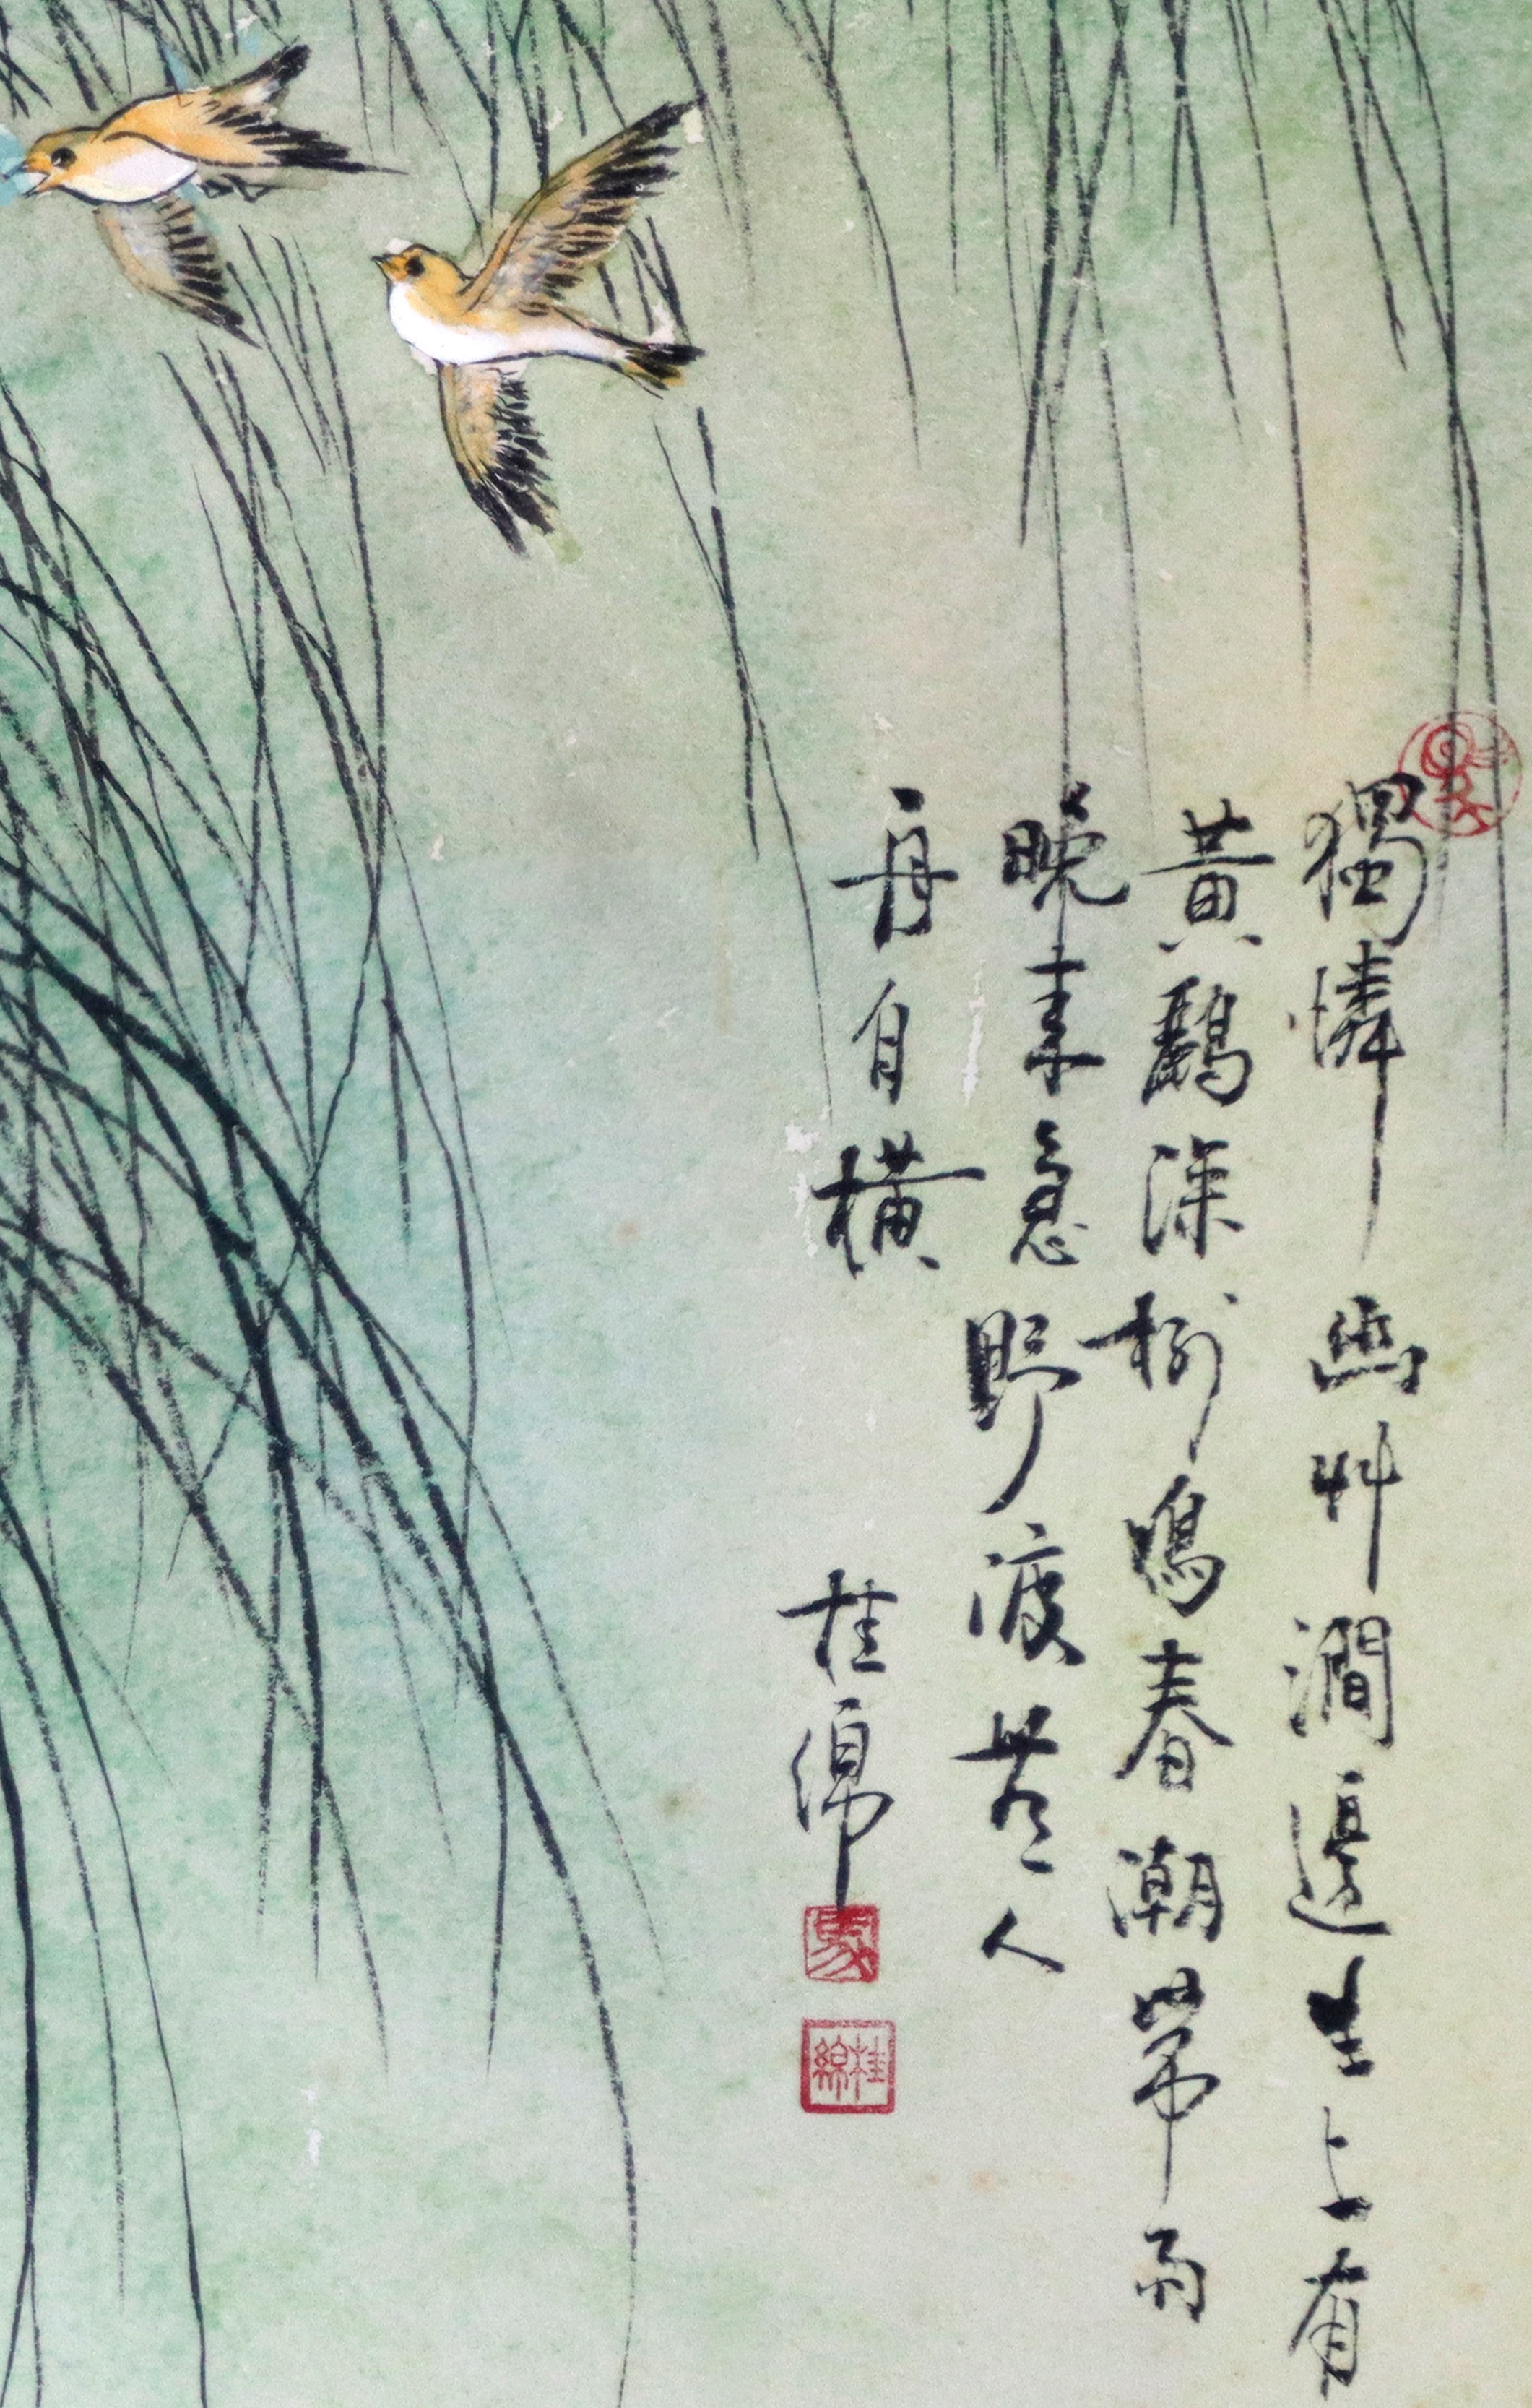 獨憐幽艸澗邊生上有
黃鸝深樹鳴春潮帶雨
晚來急野渡無人
舟自橫
桂綿
桂綿